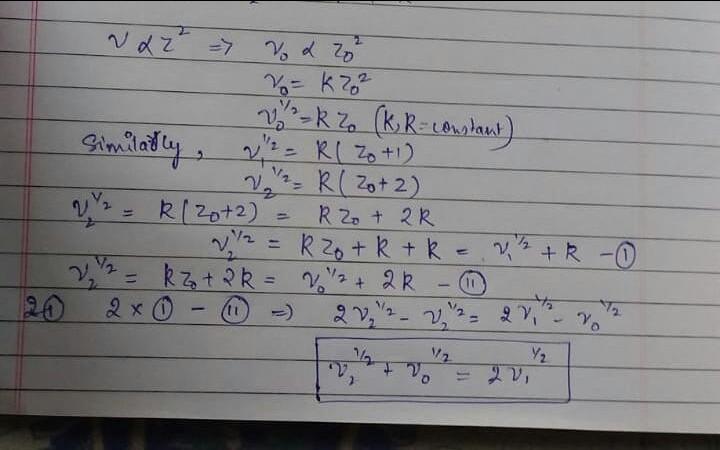 ν ∝ z² ⇒ ν₀ ∝ z₀²
ν₀ = K z₀²
ν₀^1/2 = R z₀ (K, R = constant)
Similarly, ν₁^1/2 = R( z₀ + 1)
ν₂^1/2 = R( z₀ + 2)
ν₂^1/2 = R(z₀+2) = R z₀ + 2R
ν₂^1/2 = R z₀ + R + R = ν₁^1/2 + R - ①
ν₂^1/2 = R z₀ + 2R = ν₀^1/2 + 2R - ⑪
2① 2 × ① - ⑪ ⇒ 2ν₂^1/2 - ν₂^1/2 = 2ν₁^1/2 - ν₀^1/2
ν₂^1/2 + ν₀^1/2 = 2ν₁^1/2